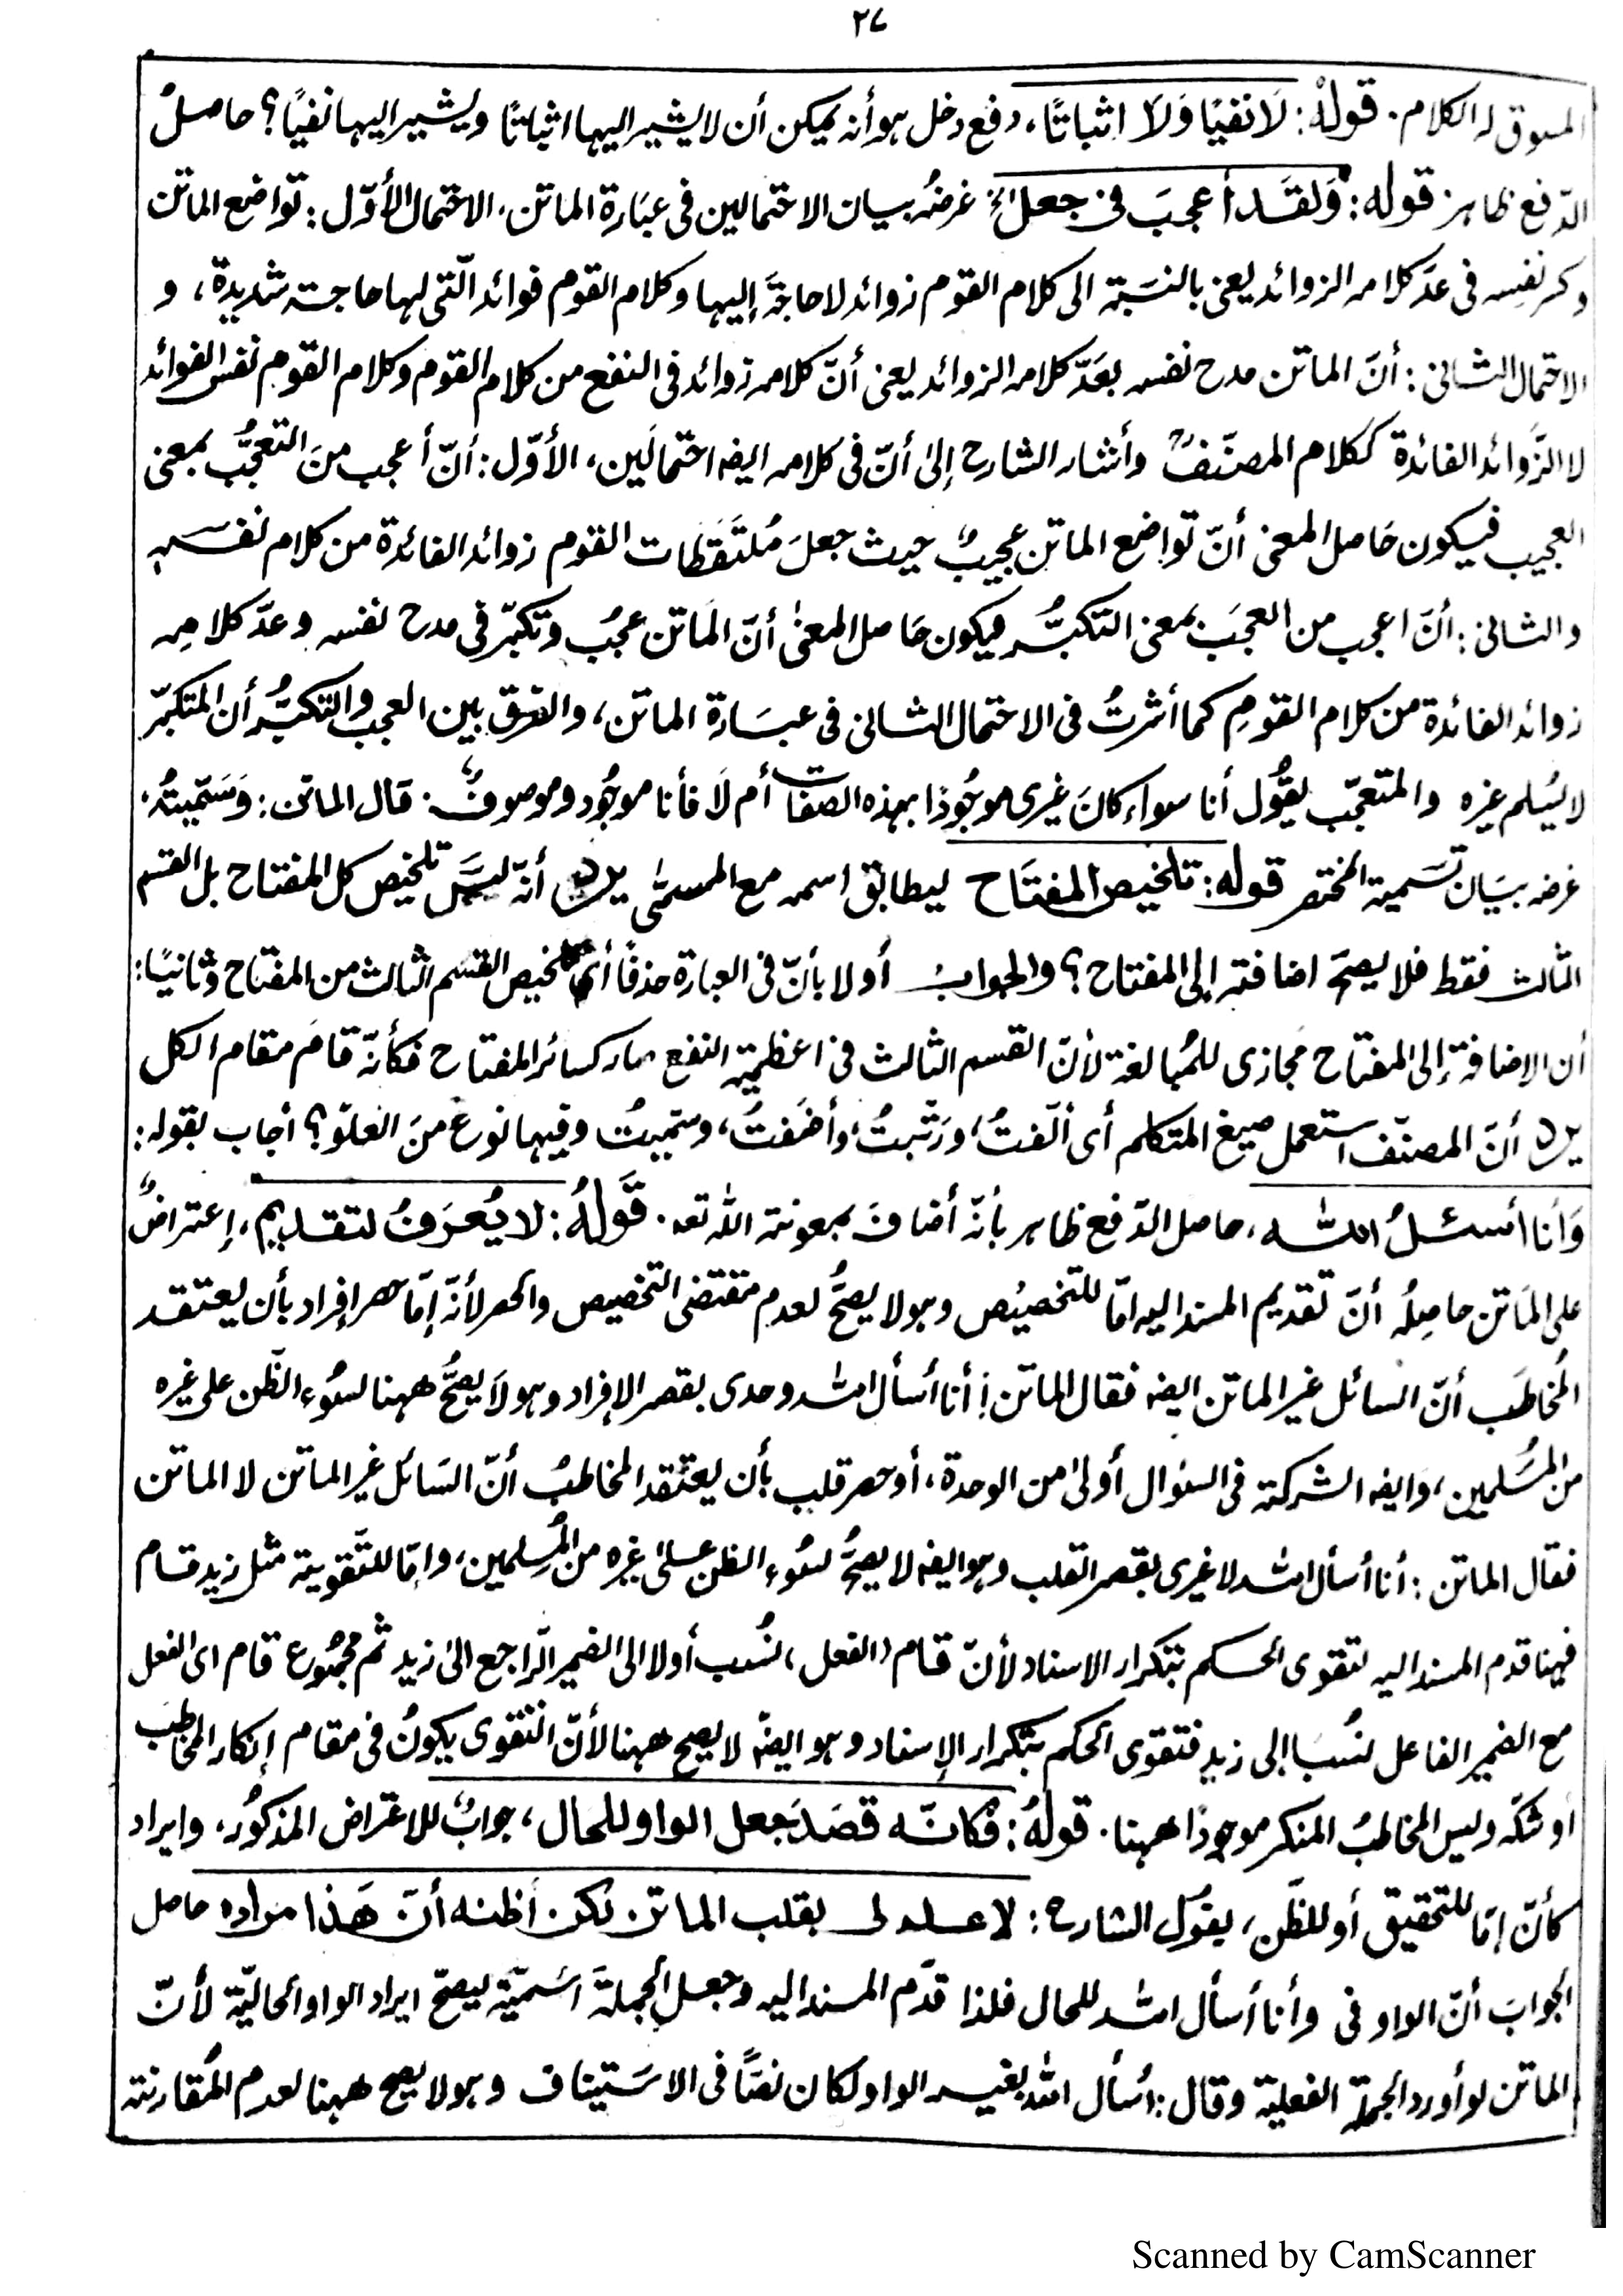 ٢٧
المسوق له الكلام. قولهُ: لَا نفيًا وَلَا اثباتًا، دفع دخل هو أنه يمكن أن لا يشير اليها اثباتًا ويشير اليها نفيًا؟ حاصلُ
الدّفع ظاهر: قوله: وَلقَد أعجبَ فى جعل الخ غرضهُ بيان الاحتمالين فى عبَارة الماتن، الاحتمال الأوّل: تواضع الماتن
وكسر نفسِه فى عدَّ كلامه الزوائد يعنى بالنسَبة الى كلام القوم زوائد لا حاجةَ إليها وكلام القوم فوائد الّتى لها حاجة شديدة، و
الاحتمال الثانى: أنَّ الماتن مدح نفسه بعَدَّ كلامه الزوائد يعنى أنّ كلامه زوائد فى النفع من كلام القوم وكلام القوم نفس الفوائد
لا الزَّوائد الفائدة ككلام المصنّفؒ وأشار الشارح إلىٰ أنّ فى كلامه ايضه احتمالَين، الأوّل: أنّ أعجب منَ التعجُّب بمعنى
العجيب فيكون حَاصل المعنى أنّ تواضع الماتن عجيبٌ حيث جعلَ مُلتَقَطات القوم زوائد الفائدة من كلام نفسَه
والثانى: أنّ اعجب من العجَب بمعنى التكبُّر فيكون حَاصل المعنىٰ أنّ المَاتن عجبُ وتكبّر فى مدح نفسه وعدَّ كلامِه
زوائد الفائدة من كلام القومِ كما أشرتُ فى الاحتمال الثانى فى عبسَارة الماتن، والفرق بين العجب والتكبُّر أن المتكبّر
لا يُسلم غيره والمتعجّب يقُول أنا سواء كانَ غيرى موجُودًا بهذه الصفات أم لَا فأنا موجُود وموصوفٌ. قال الماتن: وَسَمّيتُهُ،
غرضه بيَان تسَمية المختصر قوله: تلخيص المفتَاح ليطابق اسمه مع المسمّٰى يرد أنّه ليسَ تلخيص كل المفتاح بل القسم
الثالث فقط فلا يصحّ اضافته إلى المفتاح؟ والجوابُ أولا بأنّ فى العبارة حذفًا أى تلخيص القسم الثالث من المفتاح وثانيًا:
أن الاضافة إلى المفتاح مَجازى للمُبالغة لأنّ القسم الثالث فى اعظمية النفع صار كسائر المفتاح فكأنّه قامَ مقام الكل
يرد أنّ المصنّف استعمل صيغ المتكلم أى ألّفتُ، ورَتّبتُ، وأضَفتُ، وسمّيتُ وفيها نوع منَ العلوّ؟ أجاب بقوله:
وَأنا أسئلُ الله، حاصل الدّفع ظاهر بأنّه أضافَ بمعونة الله تعه. قَولهُ: لا يُعرَفُ لتقديم، إعتراضٌ
على المَاتن حاصِلُه أنّ تقديم المسند اليه امّا للتخصيُص وهو لا يصحُّ لعدم مقتضى التخصيص والحصر لأنّه إمّا حصر إفراد بأن يعتقد
المُخاطَب أنّ السائل غير الماتن ايضه فقال الماتن: أنا أسأل الله وحدى بقصر الإفراد وهو لَا يصحُّ ههنا لسُوء الظّن على غيره
من المُسَلمين، وايضه الشركة فى السئوال أولىٰ من الوحدة، أو حصر قلب بأن يعتقد المخاطبُ أنّ السَائل غير الماتن لا الماتن
فقال الماتن: أنا أسأل الله لا غيرى بقصر القلب وهو ايضه لا يصحُّ لسُوء الظن علىٰ غيره من المُسلمين، وامّا للتّقوية مثل زيد قام
فهنا قدم المسند اليه لتقوى الحكم بتكرار الاسناد لأنّ قام (الفعل، نُسب أولا الى الضمير الرّاجع الىٰ زيد ثم مجمُوع قام اى الفعل
مع الضمير الفاعل نُسبَا إلى زيد فتقوى الحكم بتكرار الإسناد وهو ايضًه لا يصح ههنا لأنّ التقوى يكونُ فى مقام إنكار المخاطب
أو شكّه وليس المخاطبُ المنكر موجودًا ههنا. قولهُ: فكانّه قصَدَ جعل الواو للحال، جوابٌ للاعتراض المذكوُر، وايراد
كأنّ إمّا للتحقيق أو للظّن، يقوُل الشارح: لا علم لى بقلب الماتن لكن أظنه أنّ هَذا مراده حاصل
الجوابَ أنّ الواو فى وأنا أسأل الله للحال فلذا قدّم المسند اليه وجعل الجملةَ اسَميّة ليصحّ ايراد الواو الحاليّة لأنّ
الماتن لو أورد الجملة الفعلية وقال: أسأل الله بغير الواو لكان نصًّا فى الاسَتيناف وهو لا يصح ههنا لعدم المُقارنة
Scanned by CamScanner